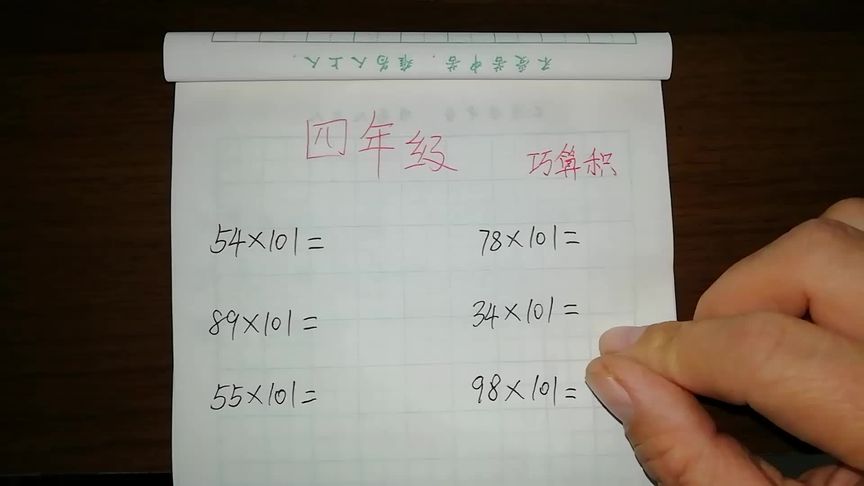 不受苦中苦．难为人上人．
四年级 巧算积
54×101= 78×101=
89×101= 34×101=
55×101= 98×101=